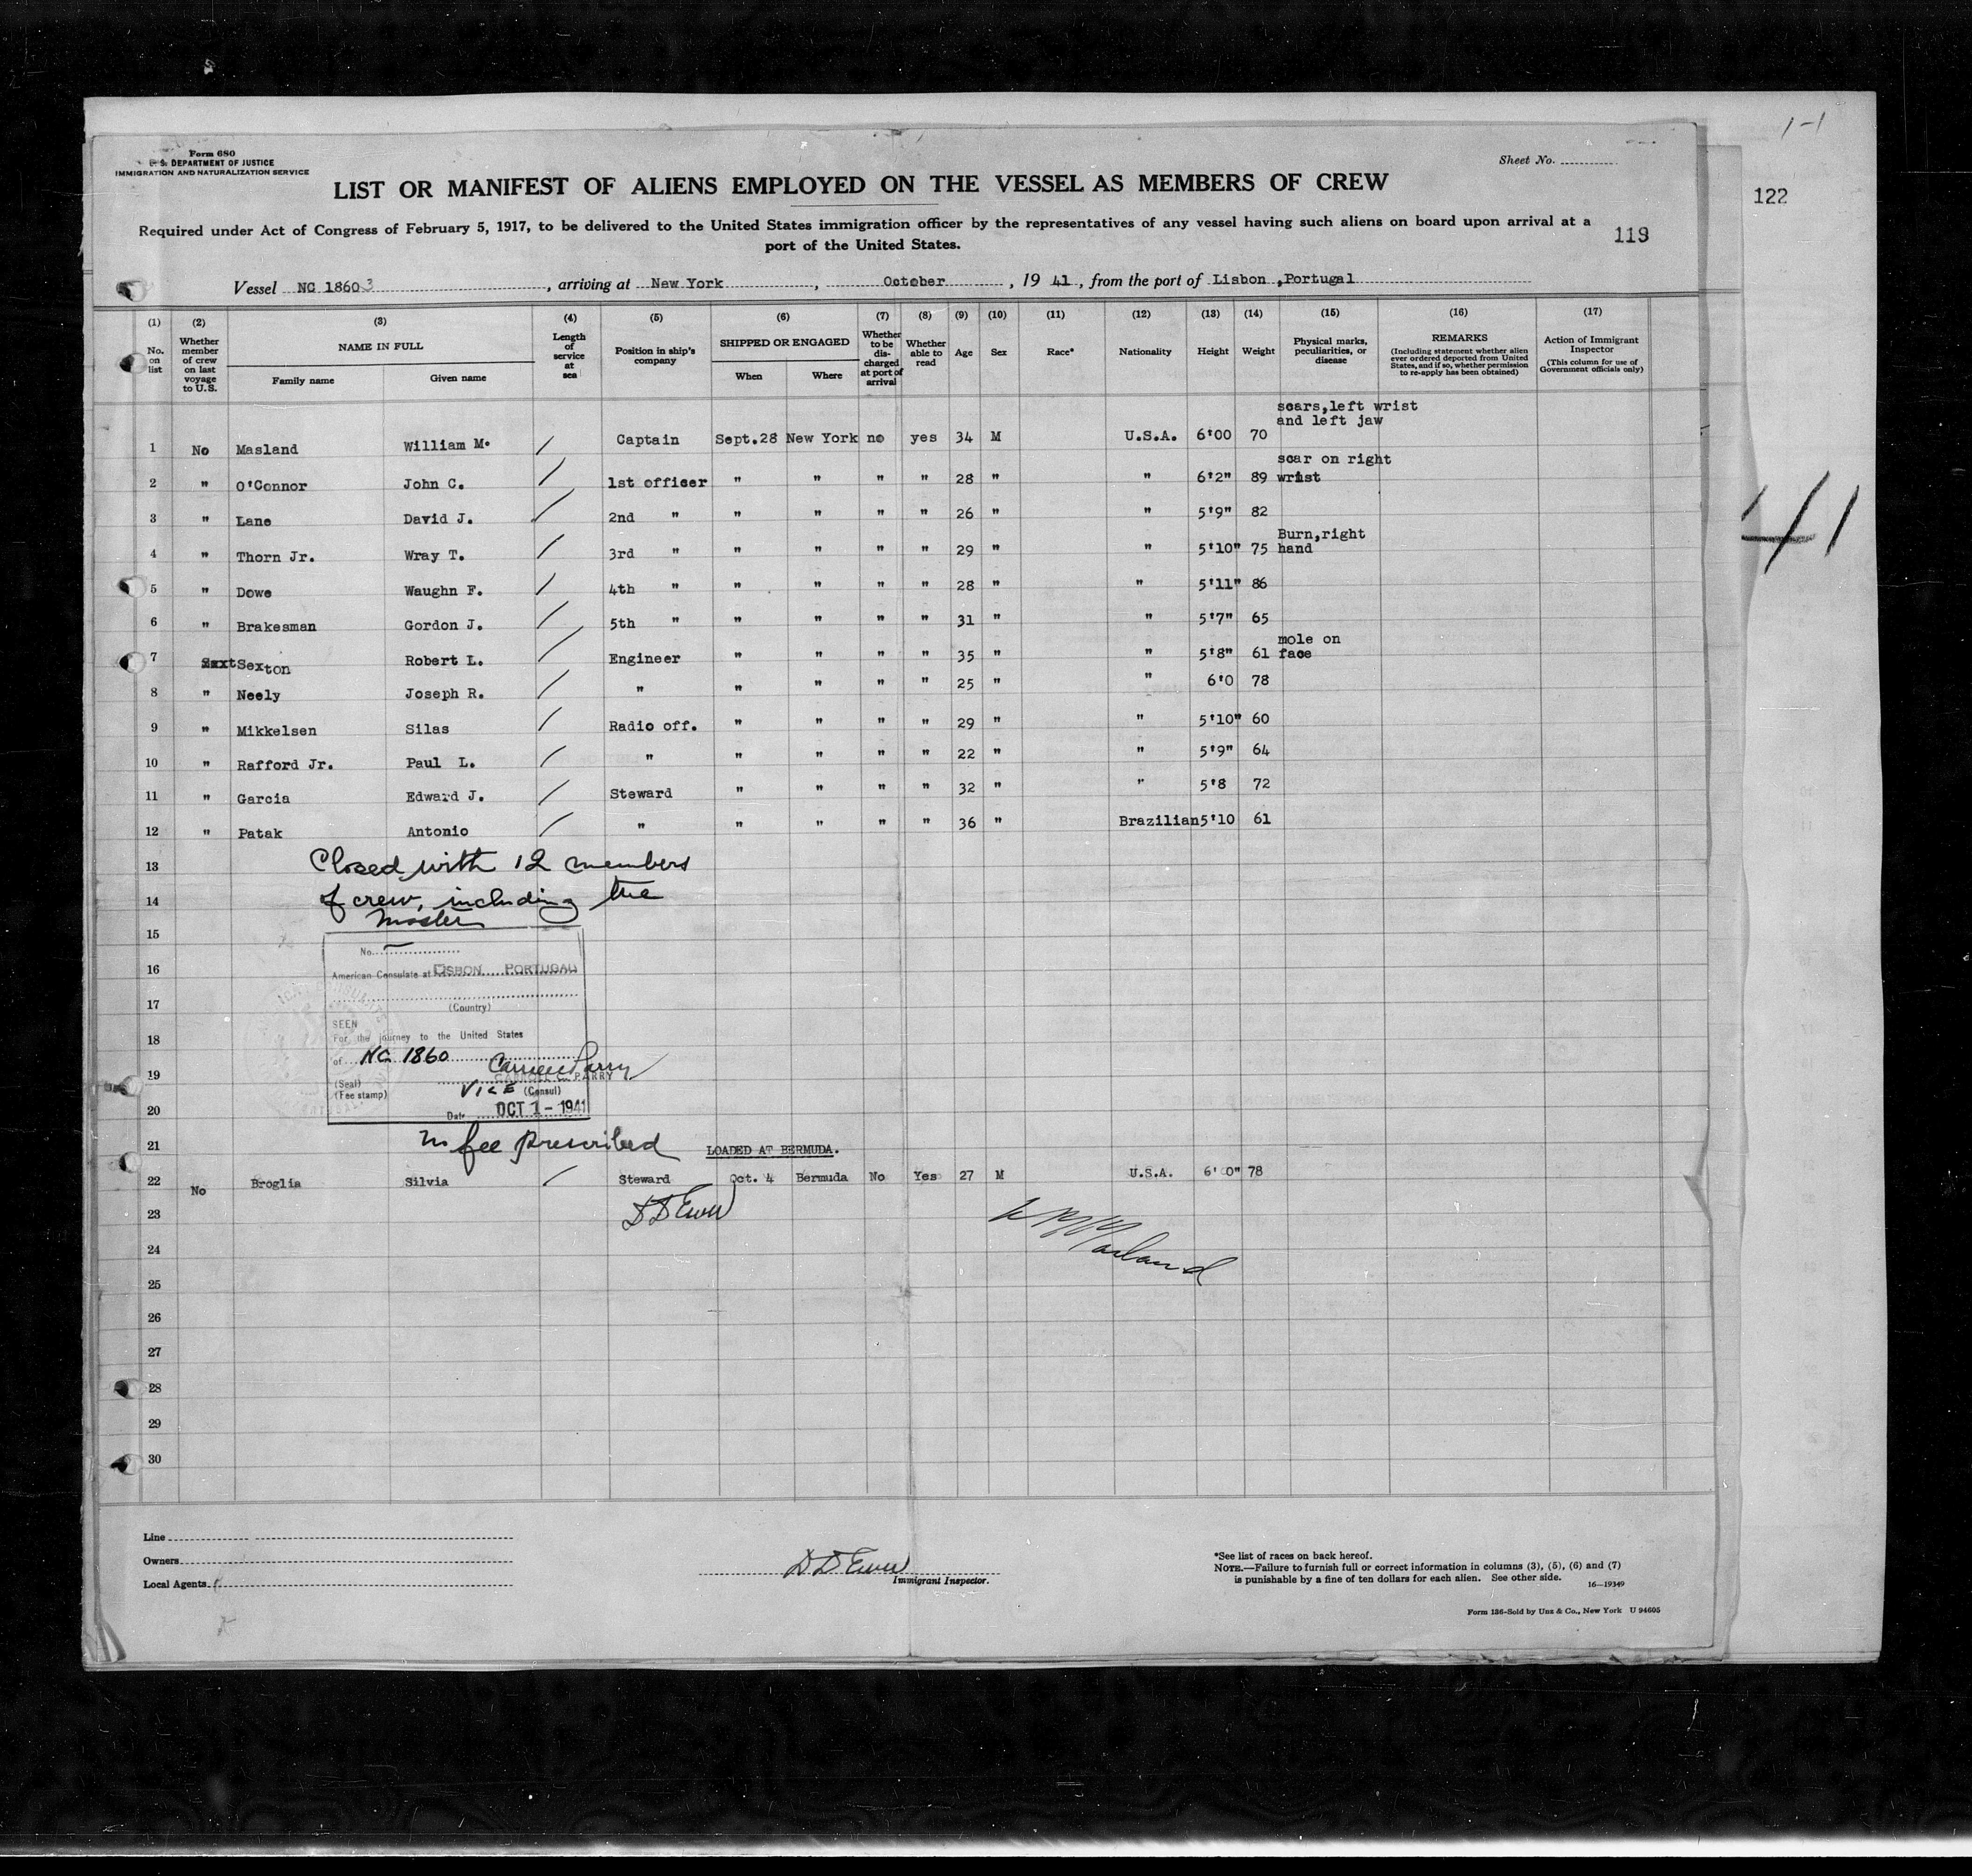 1-1
Form 680
U. S. DEPARTMENT OF JUSTICE
IMMIGRATION AND NATURALIZATION SERVICE
Sheet No.
LIST OR MANIFEST OF ALIENS EMPLOYED ON THE VESSEL AS MEMBERS OF CREW
122
Required under Act of Congress of February 5, 1917, to be delivered to the United States immigration officer by the representatives of any vessel having such aliens on board upon arrival at a
port of the United States.
119
Vessel NC 18603, arriving at New York, October, 1941, from the port of Lisbon ,Portugal
(1) (2) (3) (4) (5) (6) (7) (8) (9) (10) (11) (12) (13) (14) (15) (16) (17)
No. on list
Whether member of crew on last voyage to U.S.
NAME IN FULL
Family name Given name
Length of service at sea
Position in ship's company
SHIPPED OR ENGAGED
When Where
Whether to be discharged at port of arrival
Whether able to read
Age
Sex
Race*
Nationality
Height
Weight
Physical marks, peculiarities, or disease
REMARKS
(Including statement whether alien ever ordered deported from United States, and if so, whether permission to re-apply has been obtained)
Action of Immigrant Inspector
(This column for use of Government officials only)
1 No Masland William M. / Captain Sept.28 New York no yes 34 M U.S.A. 6'00 70 scars,left wrist and left jaw
2 " O'Connor John C. / 1st officer " " " " 28 " " 6'2" 89 scar on right wrist
3 " Lane David J. / 2nd " " " " " 26 " " 5'9" 82
4 " Thorn Jr. Wray T. / 3rd " " " " " 29 " " 5'10" 75 Burn,right hand
5 " Dowe Waughn F. / 4th " " " " " 28 " " 5'11" 86
6 " Brakesman Gordon J. / 5th " " " " " 31 " " 5'7" 65
7 Sexton Robert L. / Engineer " " " " 35 " " 5'8" 61 mole on face
8 " Neely Joseph R. / " " " " " 25 " " 6'0 78
9 " Mikkelsen Silas / Radio off. " " " " 29 " " 5'10" 60
10 " Rafford Jr. Paul L. / " " " " " 22 " " 5'9" 64
11 " Garcia Edward J. / Steward " " " " 32 " " 5'8 72
12 " Patak Antonio / " " " " " 36 " Brazilian 5'10 61
41
13 Closed with 12 members
14 of crew, including the
master
15
No.
16 American Consulate at LISBON PORTUGAL
17 (Country)
SEEN
18 For the journey to the United States
of NC 1860
19 (Seal) PARRY
(Fee stamp) VICE (Consul)
20 Date OCT 1 - 1941
21 No fee prescribed LOADED AT BERMUDA.
22 No Broglia Silvia / Steward Oct. 4 Bermuda No Yes 27 M U.S.A. 6'0" 78
23 D D Ewer
24 W M Masland
25
26
27
28
29
30
Line
Owners
Local Agents
D D Ewer
Immigrant Inspector.
*See list of races on back hereof.
NOTE.—Failure to furnish full or correct information in columns (3), (5), (6) and (7)
is punishable by a fine of ten dollars for each alien. See other side.
16—19349
Form 136-Sold by Unz & Co., New York U 94605